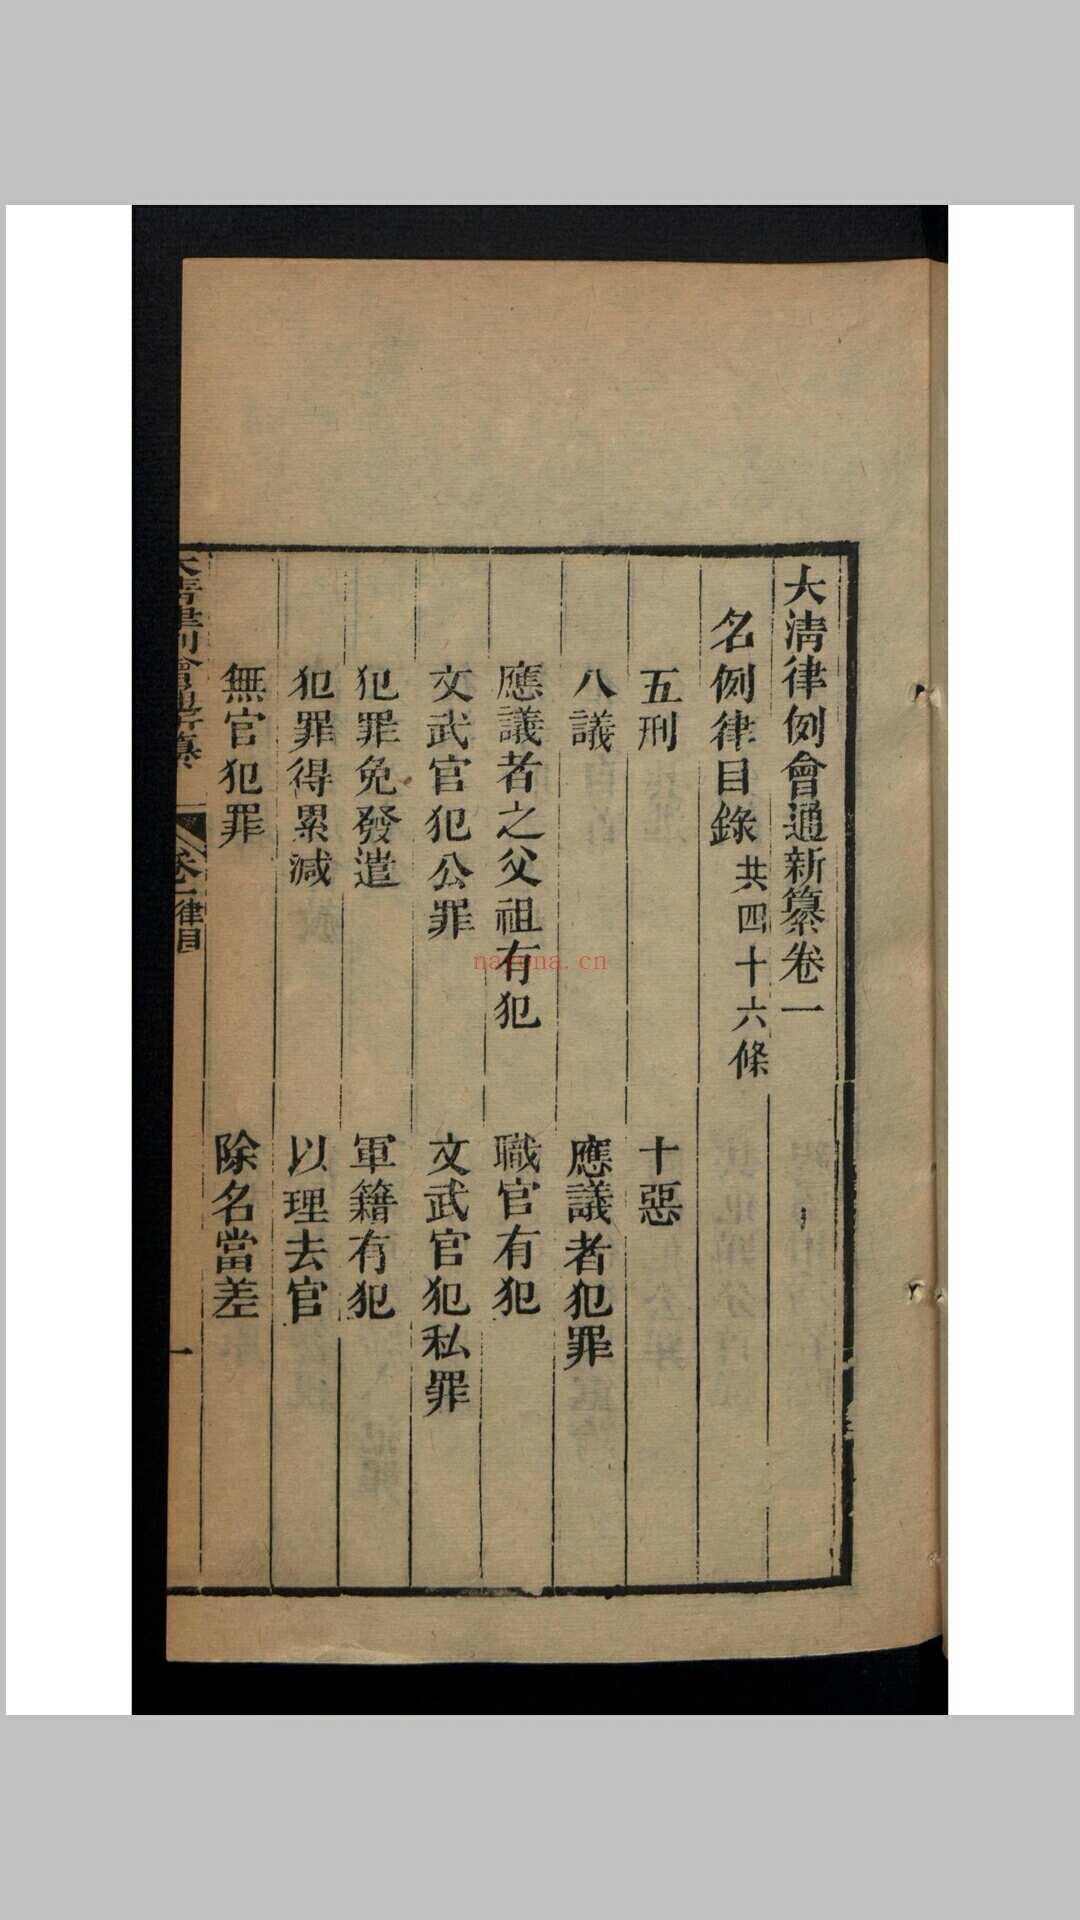 大清律例會通新纂卷一
名例律目錄 共四十六條
五刑 十惡
八議 應議者犯罪
應議者之父祖有犯 職官有犯
文武官犯公罪 文武官犯私罪
犯罪免發遣 軍籍有犯
犯罪得累減 以理去官
無官犯罪 除名當差
大清律例會通新纂 卷一 律目 一
nayona.cn